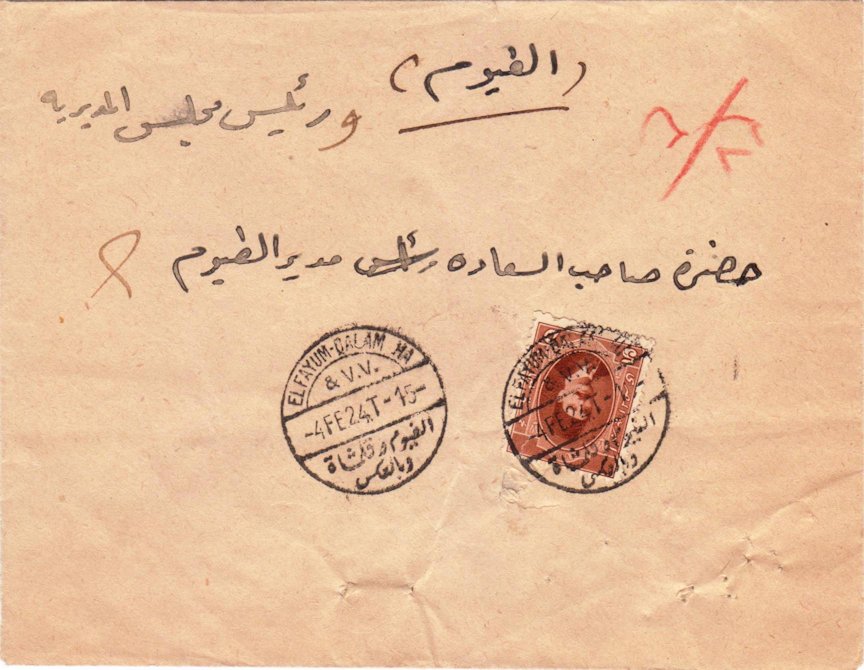 (الفيوم)
ورئيس مجلس المديريه
حضرة صاحب السعاده مدير الفيوم
ELFAYUM-QALAM HA
& V.V.
-4FE24.T-15-
الفيوم وقلمشاة
وبالعكس
ELFAYUM-QALA
4FE24.T-
وبالعكس